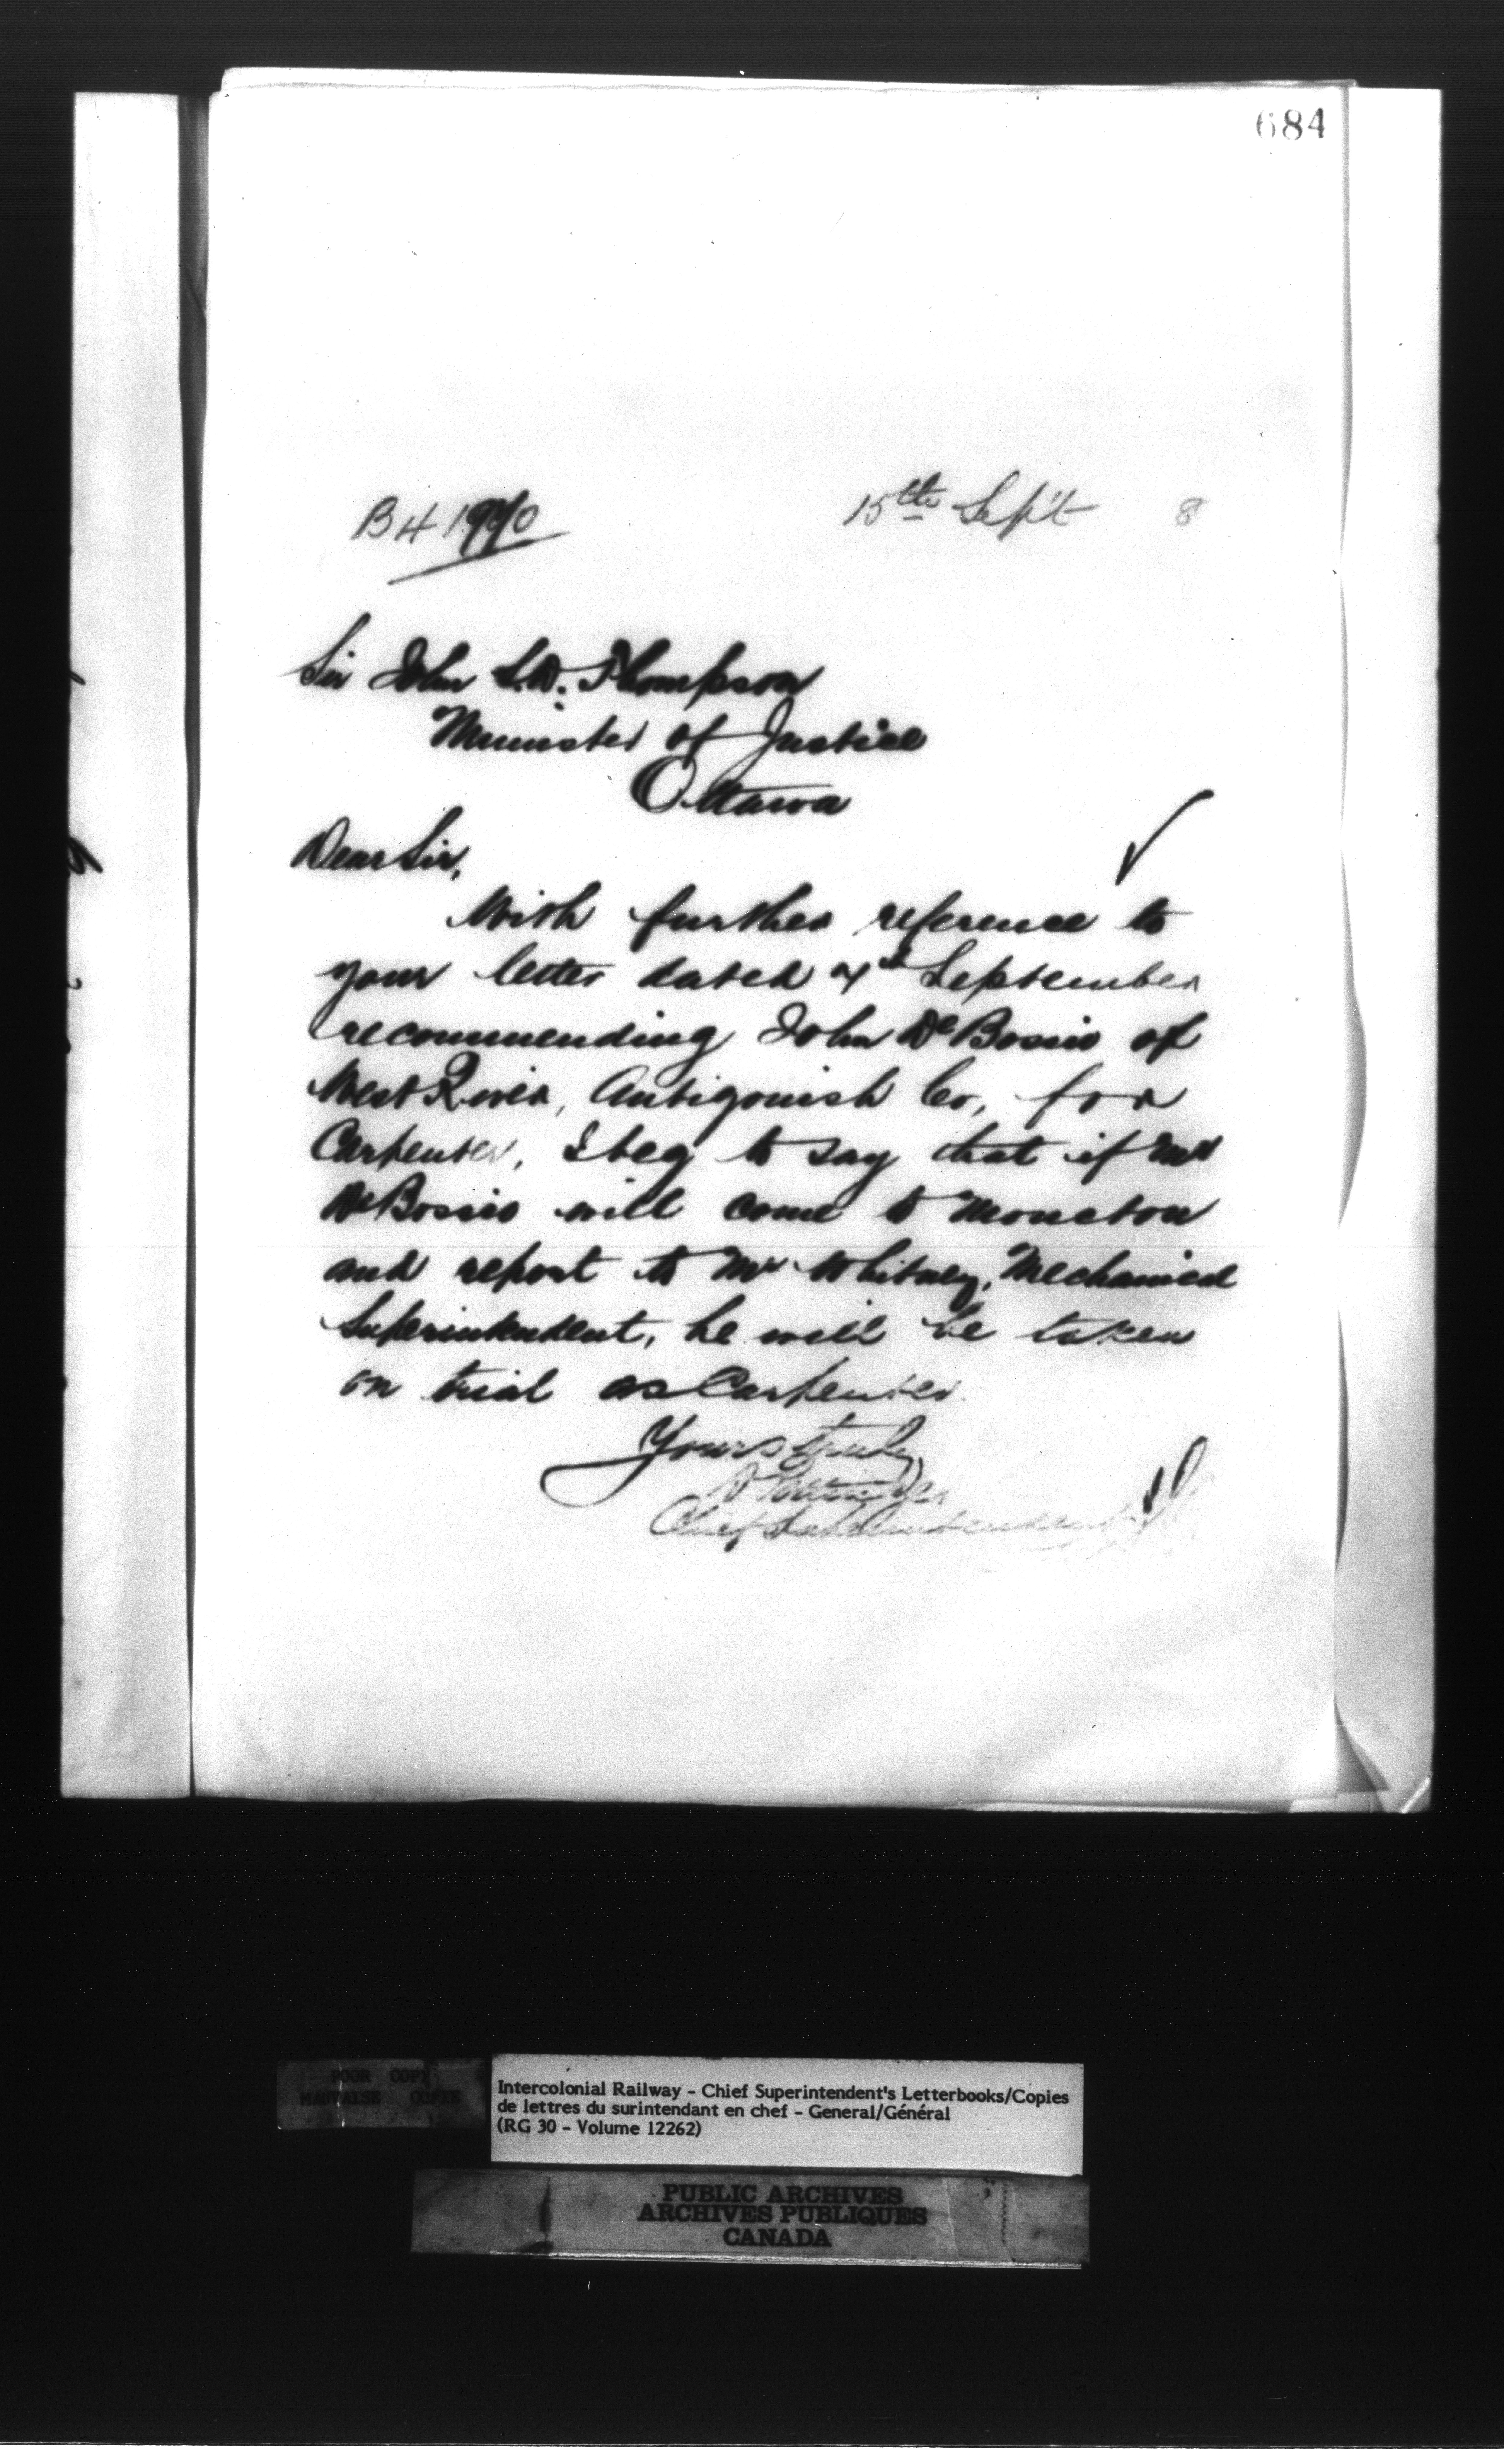 684
B 4
15th Sept 8
Sir John S.D. Thompson
Minister of Justice
Ottawa
Dear Sir,
With further reference to
your letter dated 4th September
recommending John De Bossio of
West River, Antigonish Co, for
Carpenter, I beg to say that if Mr
De Bossio will come to Moncton
and report to Mr Whitney, Mechanical
Superintendent, he will be taken
on trial as Carpenter.
Yours truly
D Pottinger
Chief Superintendent
POOR COPY
MAUVAISE COPIE
Intercolonial Railway - Chief Superintendent's Letterbooks/Copies
de lettres du surintendant en chef - General/Général
(RG 30 - Volume 12262)
PUBLIC ARCHIVES
ARCHIVES PUBLIQUES
CANADA